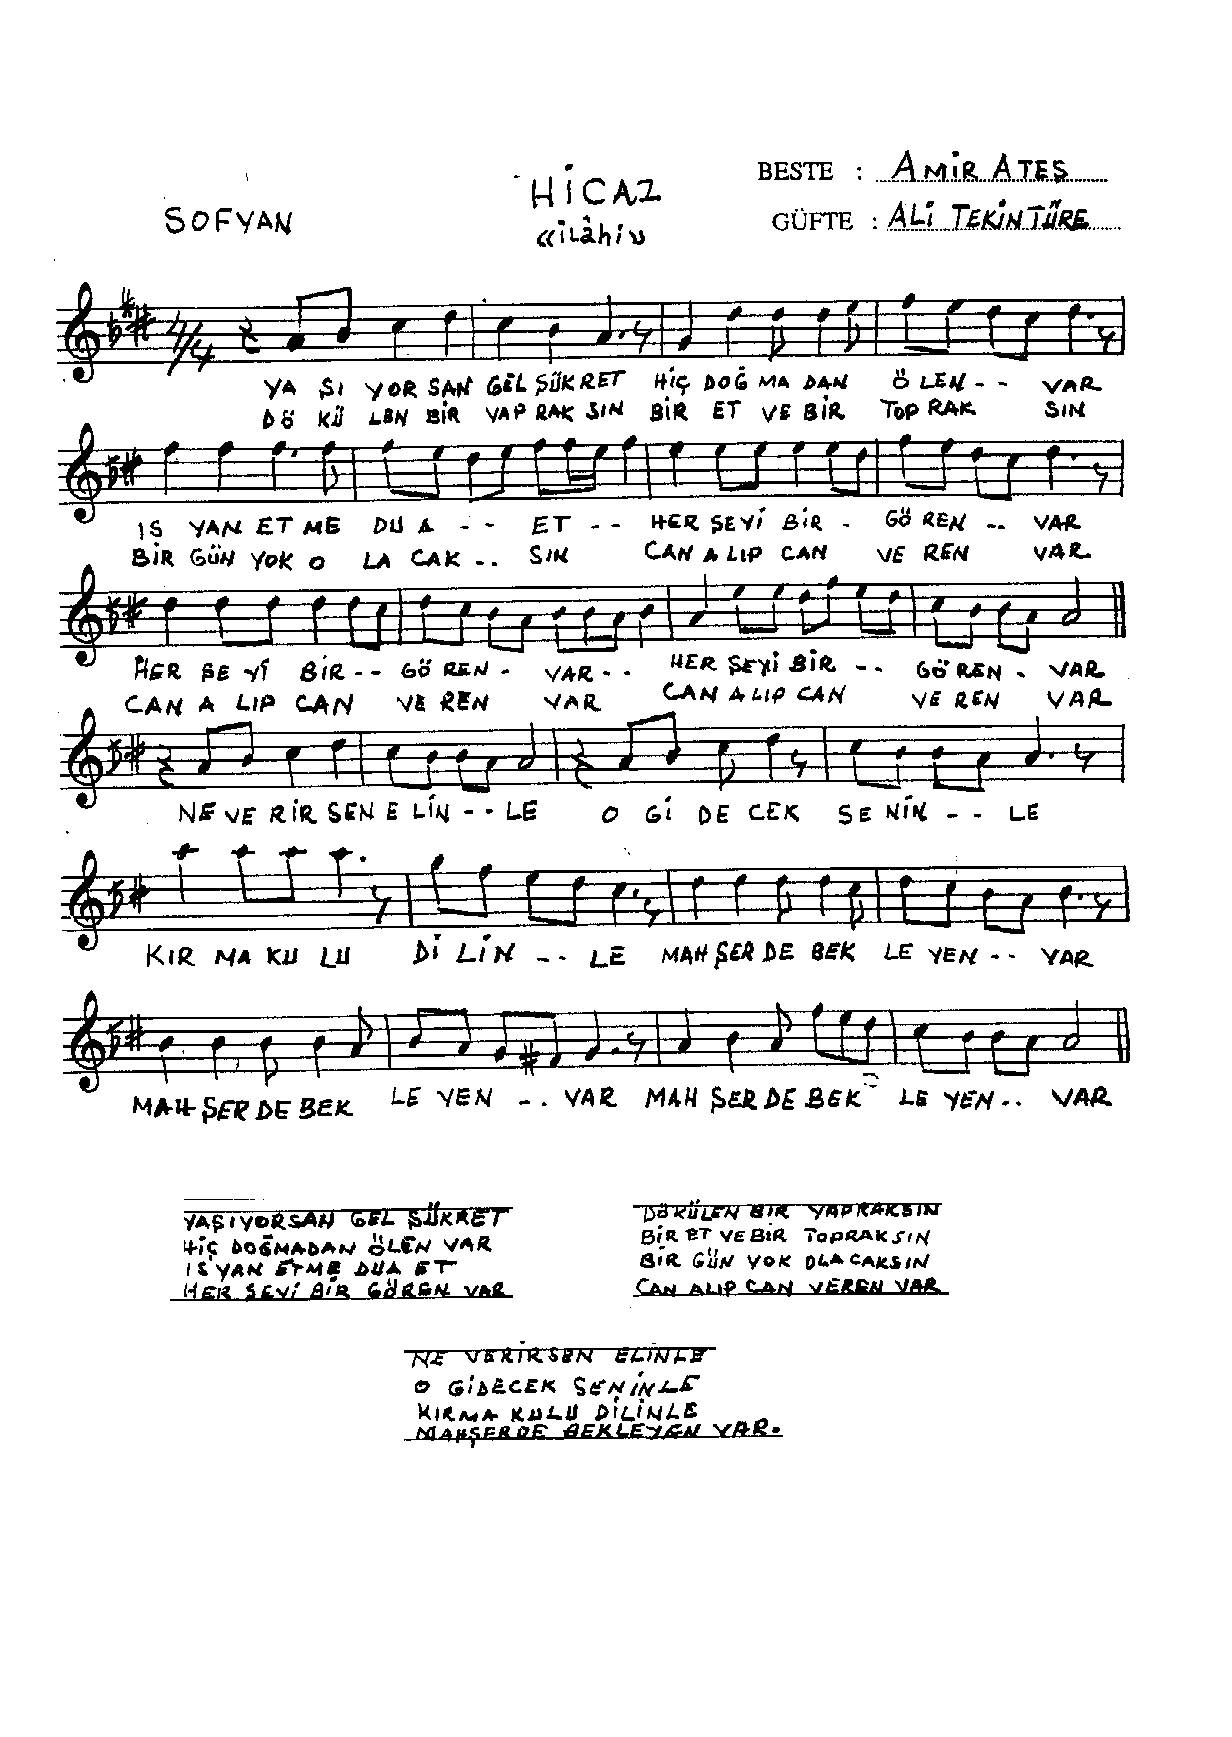 HİCAZ
BESTE : AMİR ATEŞ
SOFYAN
«İLÂHİ»
GÜFTE : ALİ TEKİNTÜRE
4/4
YA ŞI YOR SAN GEL ŞÜKRET HİÇ DOĞ MA DAN Ö LEN - - VAR
DÖ KÜ LEN BİR YAP RAK SIN BİR ET VE BİR TOP RAK SIN
IS YAN ET ME DU A - - ET - - HER ŞEYİ BİR - GÖ REN - - VAR
BİR GÜN YOK O LA CAK - - SIN CAN A LIP CAN VE REN VAR
HER ŞE Yİ BİR - - GÖ REN - VAR - - HER ŞEYİ BİR - - GÖ REN - VAR
CAN A LIP CAN VE REN VAR CAN A LIP CAN VE REN VAR
NE VE RİR SEN E LİN - - LE O Gİ DE CEK SE NİN - - LE
KIR MA KU LU Dİ LİN - - LE MAH ŞER DE BEK LE YEN - - VAR
MAH ŞER DE BEK LE YEN - - VAR MAH ŞER DE BEK LE YEN - - VAR
YAŞIYORSAN GEL ŞÜKRET
HİÇ DOĞMADAN ÖLEN VAR
ISYAN ETME DUA ET
HER ŞEYİ BİR GÖREN VAR
DÖKÜLEN BİR YAPRAKSIN
BİR ET VE BİR TOPRAKSIN
BİR GÜN YOK OLACAKSIN
CAN ALIP CAN VEREN VAR
NE VERİRSEN ELİNLE
O GİDECEK SENİNLE
KIRMA KULU DİLİNLE
MAHŞERDE BEKLEYEN VAR.